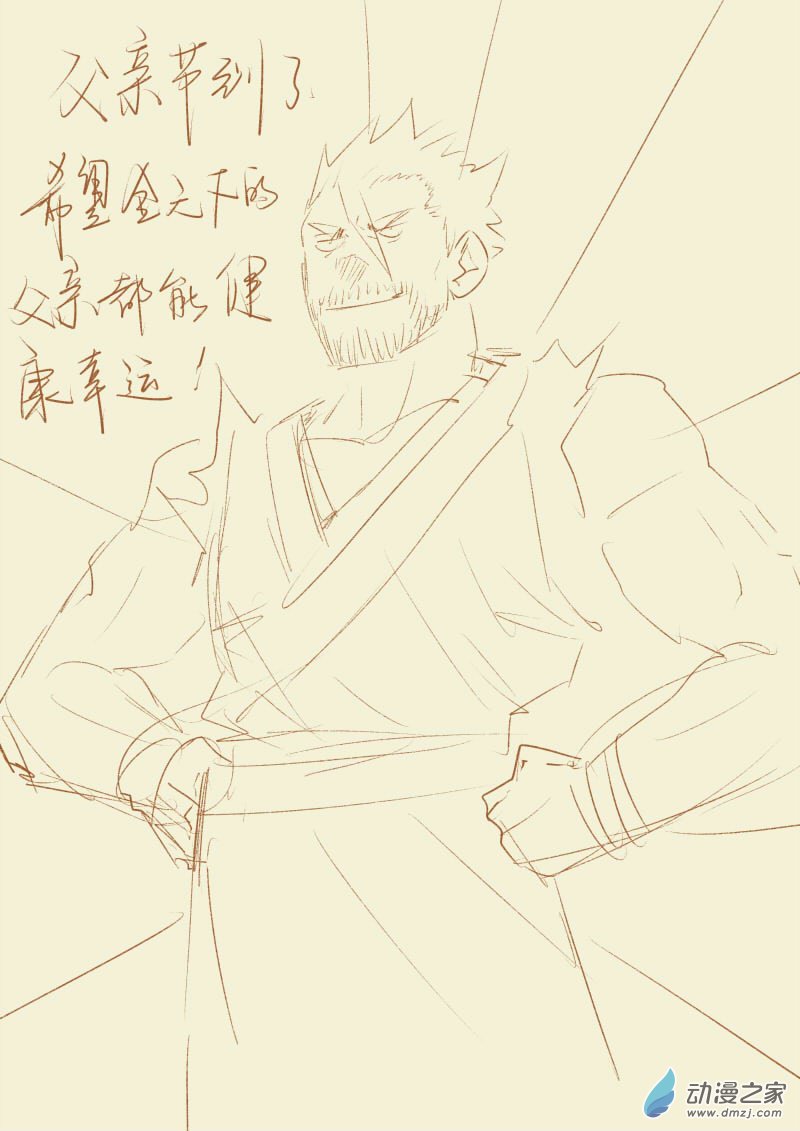 父亲节到了
希望全天下的
父亲都能健
康幸运！
动漫之家
www.dmzj.com